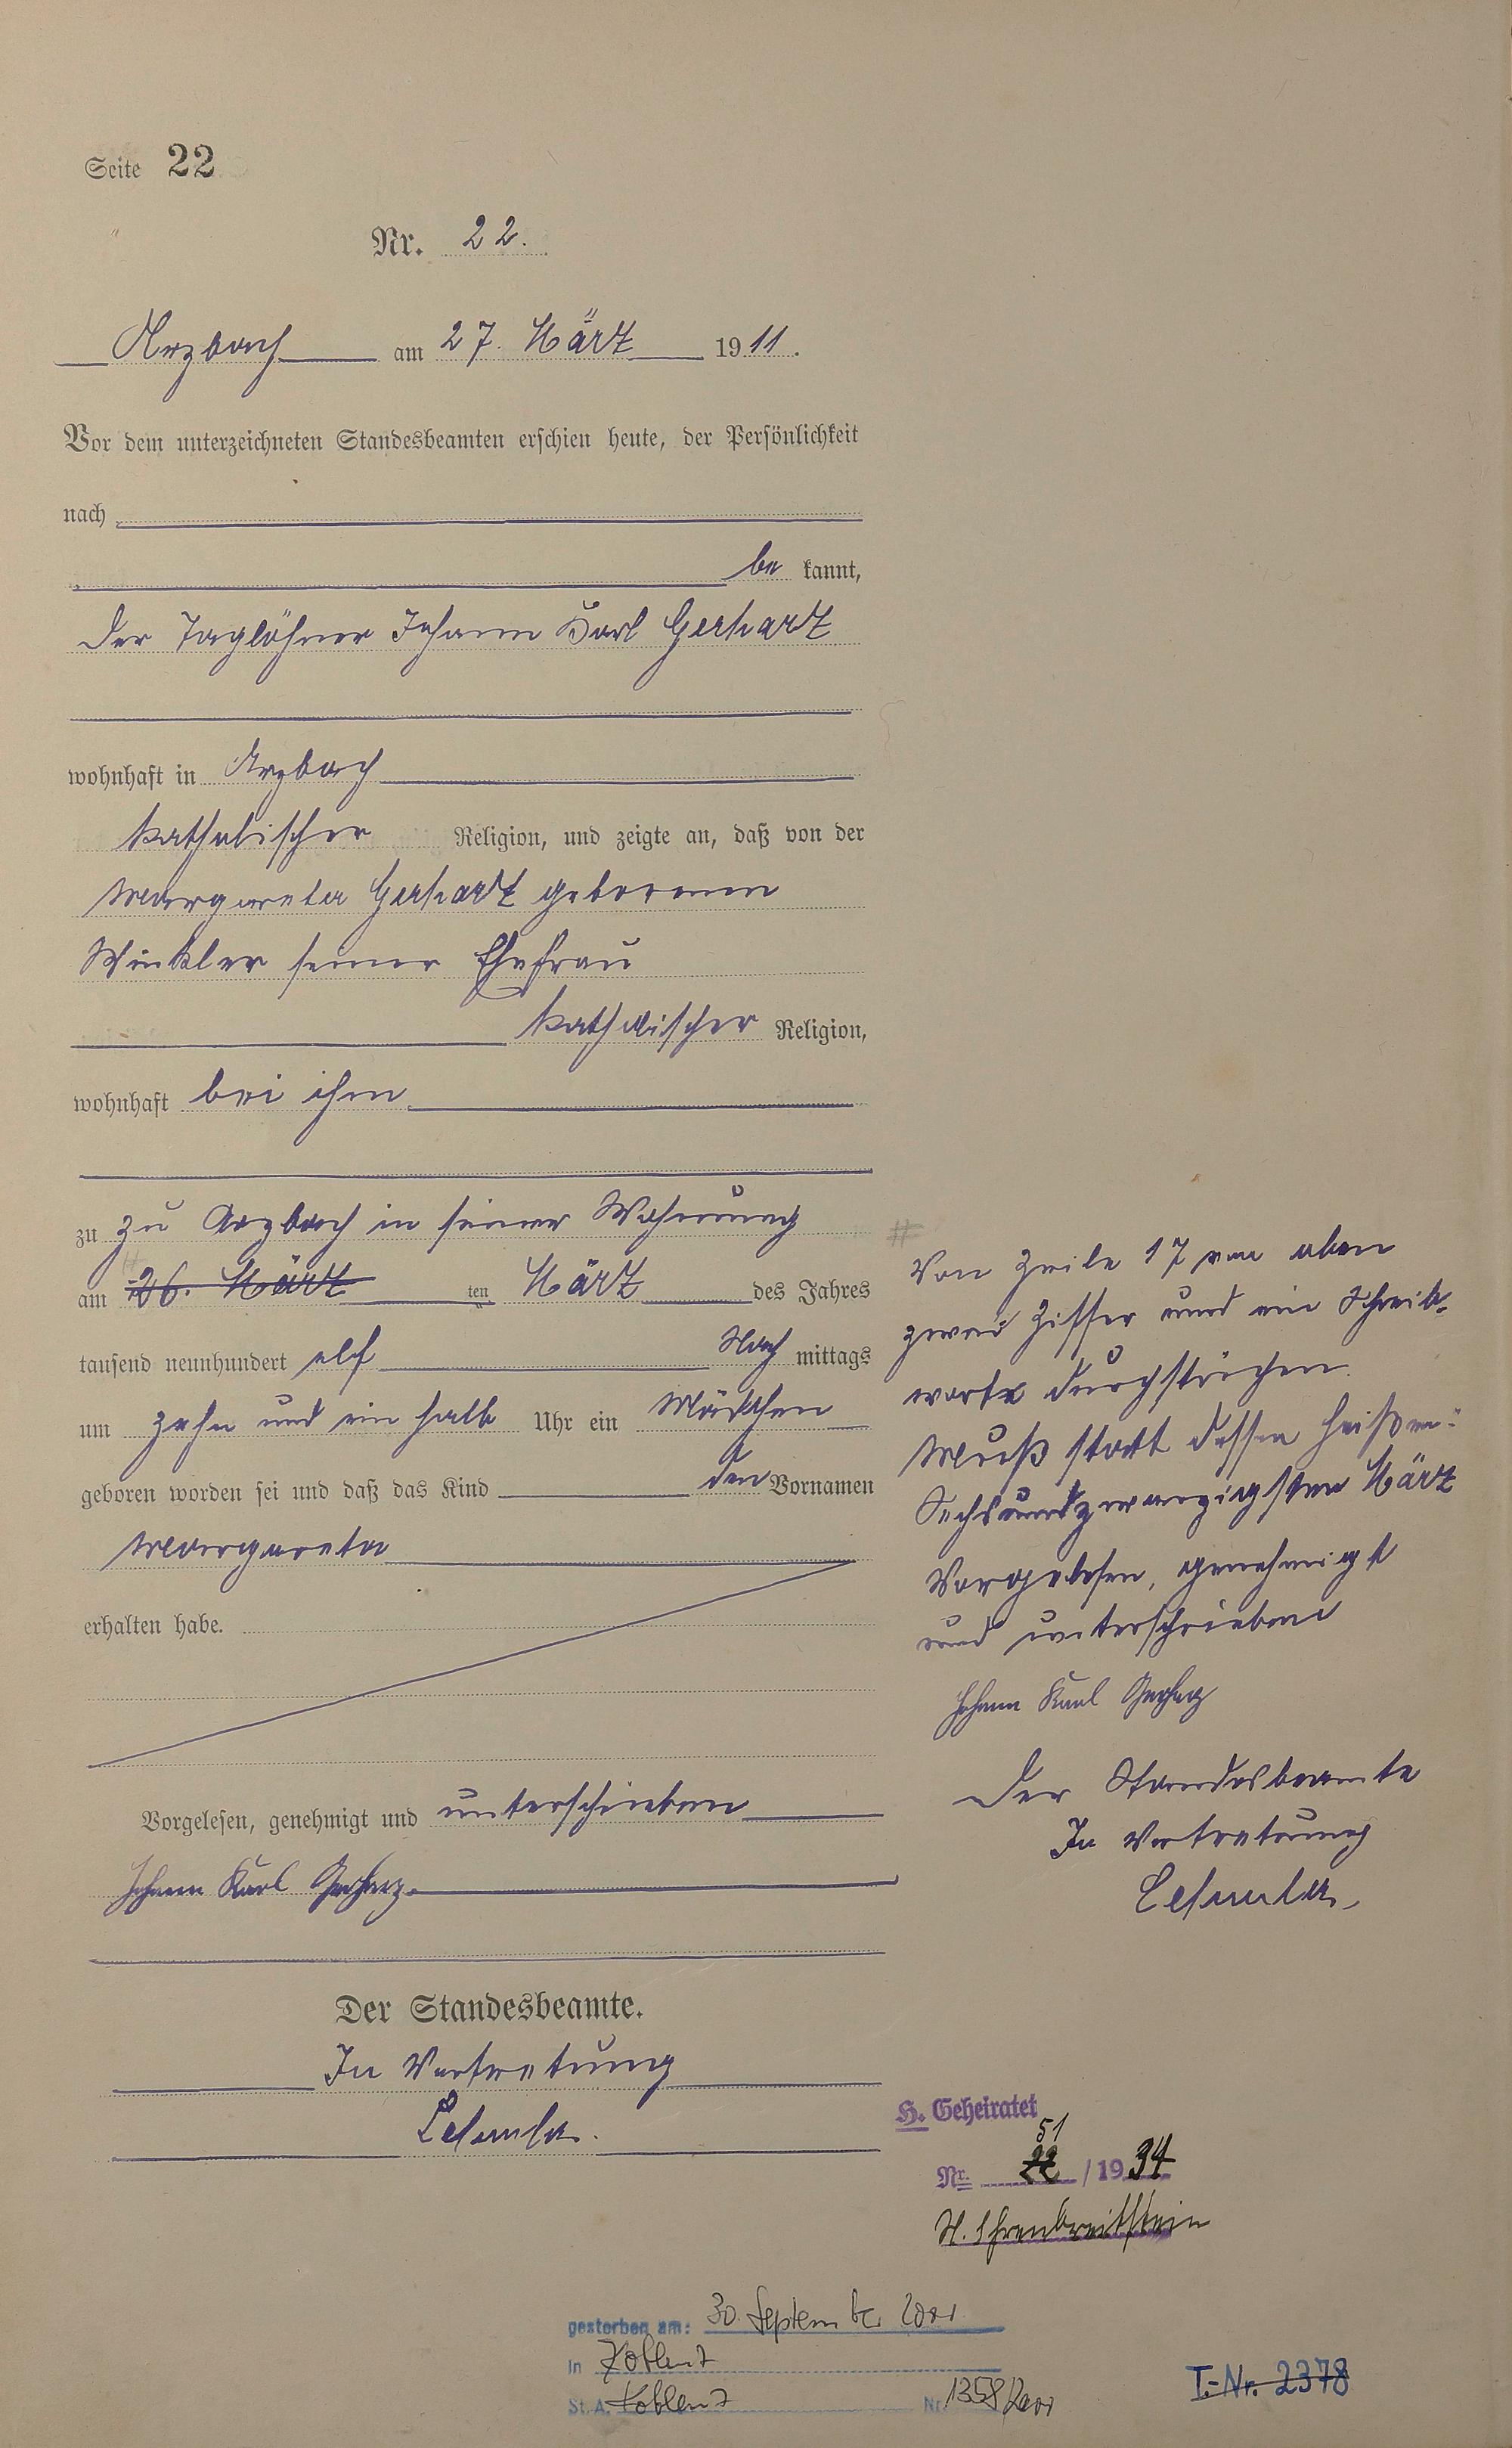 Seite 22
Nr. 22.
Arzbach am 27. März 1911.
Vor dem unterzeichneten Standesbeamten erschien heute, der Persönlichkeit
nach
be kannt,
der Taglöhner Johann Karl Gerhartz
wohnhaft in Arzbach
katholischer Religion, und zeigte an, daß von der
Margareta Gerhartz geborenen
Winkler seiner Ehefrau
katholischer Religion,
wohnhaft bei ihm
zu zu Arzbach in seiner Wohnung
am 26. März ten März des Jahres
tausend neunhundert elf Nach mittags
um zehn und ein halb Uhr ein Mädchen
geboren worden sei und daß das Kind den Vornamen
Margareta
erhalten habe.
Vorgelesen, genehmigt und unterschrieben
Johann Karl Gerharz
Der Standesbeamte.
In Vertretung
#
Von Zeile 17 von oben
zwei Ziffer und ein Schreib-
worte durchstrichen.
Muß statt dessen heißen:
Sechsundzwanzigsten März
Vorgelesen, genehmigt
und unterschrieben
Johann Karl Gerharz
Der Standesbeamte
In Vertretung
H. Geheiratet
51
Nr. 22 / 1934
St. Ehrenbreitstein
gestorben am: 30. September 2001
in Koblenz
St. A. Koblenz Nr. 1358/2001
T.-Nr. 2378